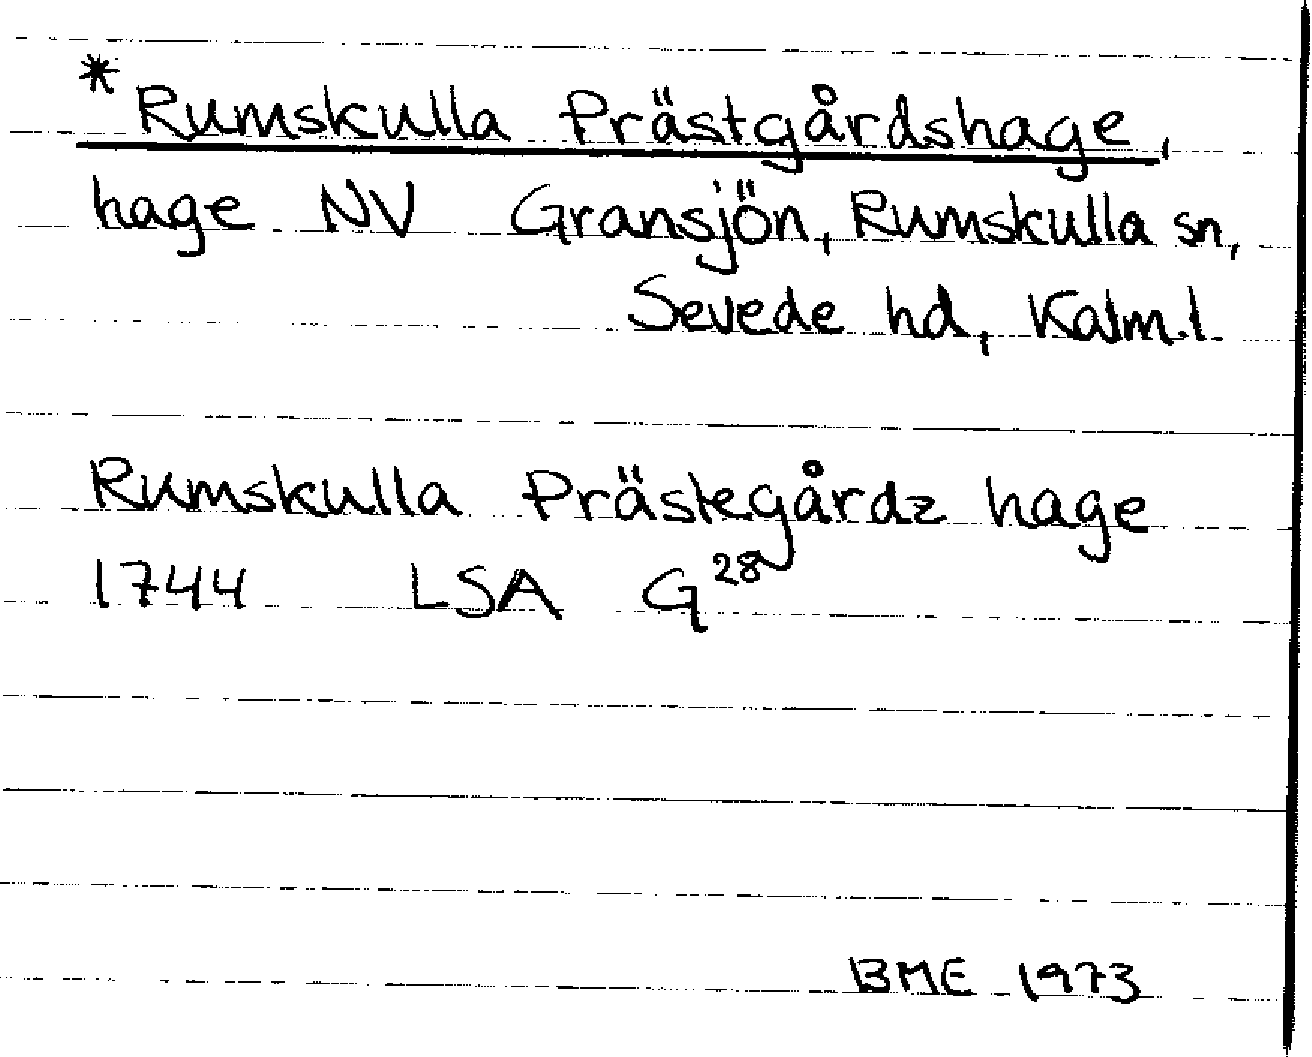 *Rumskulla Prästgårdshage,
hage NV Gransjön, Rumskulla sn,
Sevede hd, Kalm.l.
Rumskulla Prästegårdz hage
1744 LSA G28
BME 1973